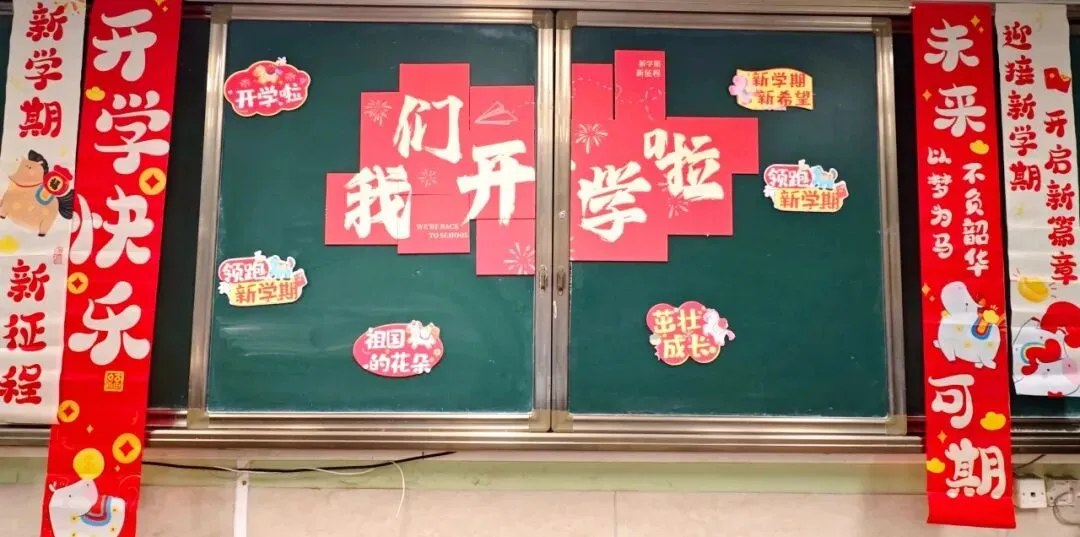 新学期
新征程
开学快乐
开学啦
我们开学啦
WE'RE BACK
TO SCHOOL
新学期
新征程
领跑
新学期
祖国
的花朵
新学期
新希望
领跑
新学期
茁壮
成长
未来
可期
不负韶华
以梦为马
迎接新学期
开启新篇章